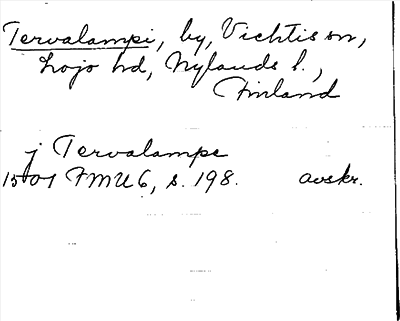 Tervalampi, by, Vichtis sn,
Lojo hd, Nylands l.,
Finland
j Tervalampe
1507 FMU 6, s. 198. avskr.